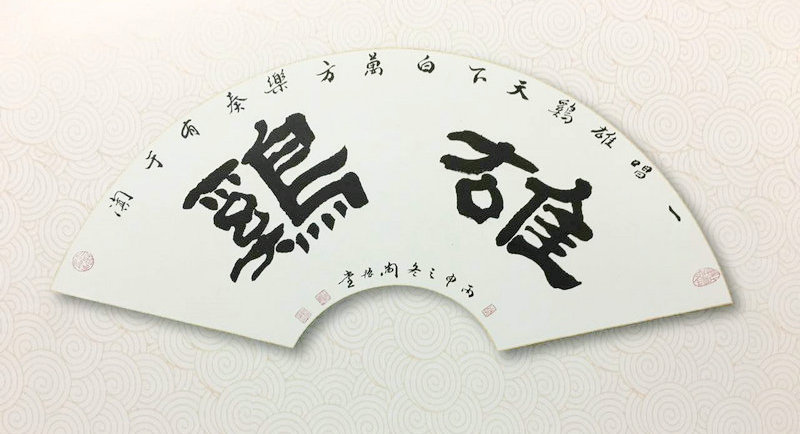 一唱雄鷄天下白萬方樂奏有于闐
雄鷄
丙申之冬